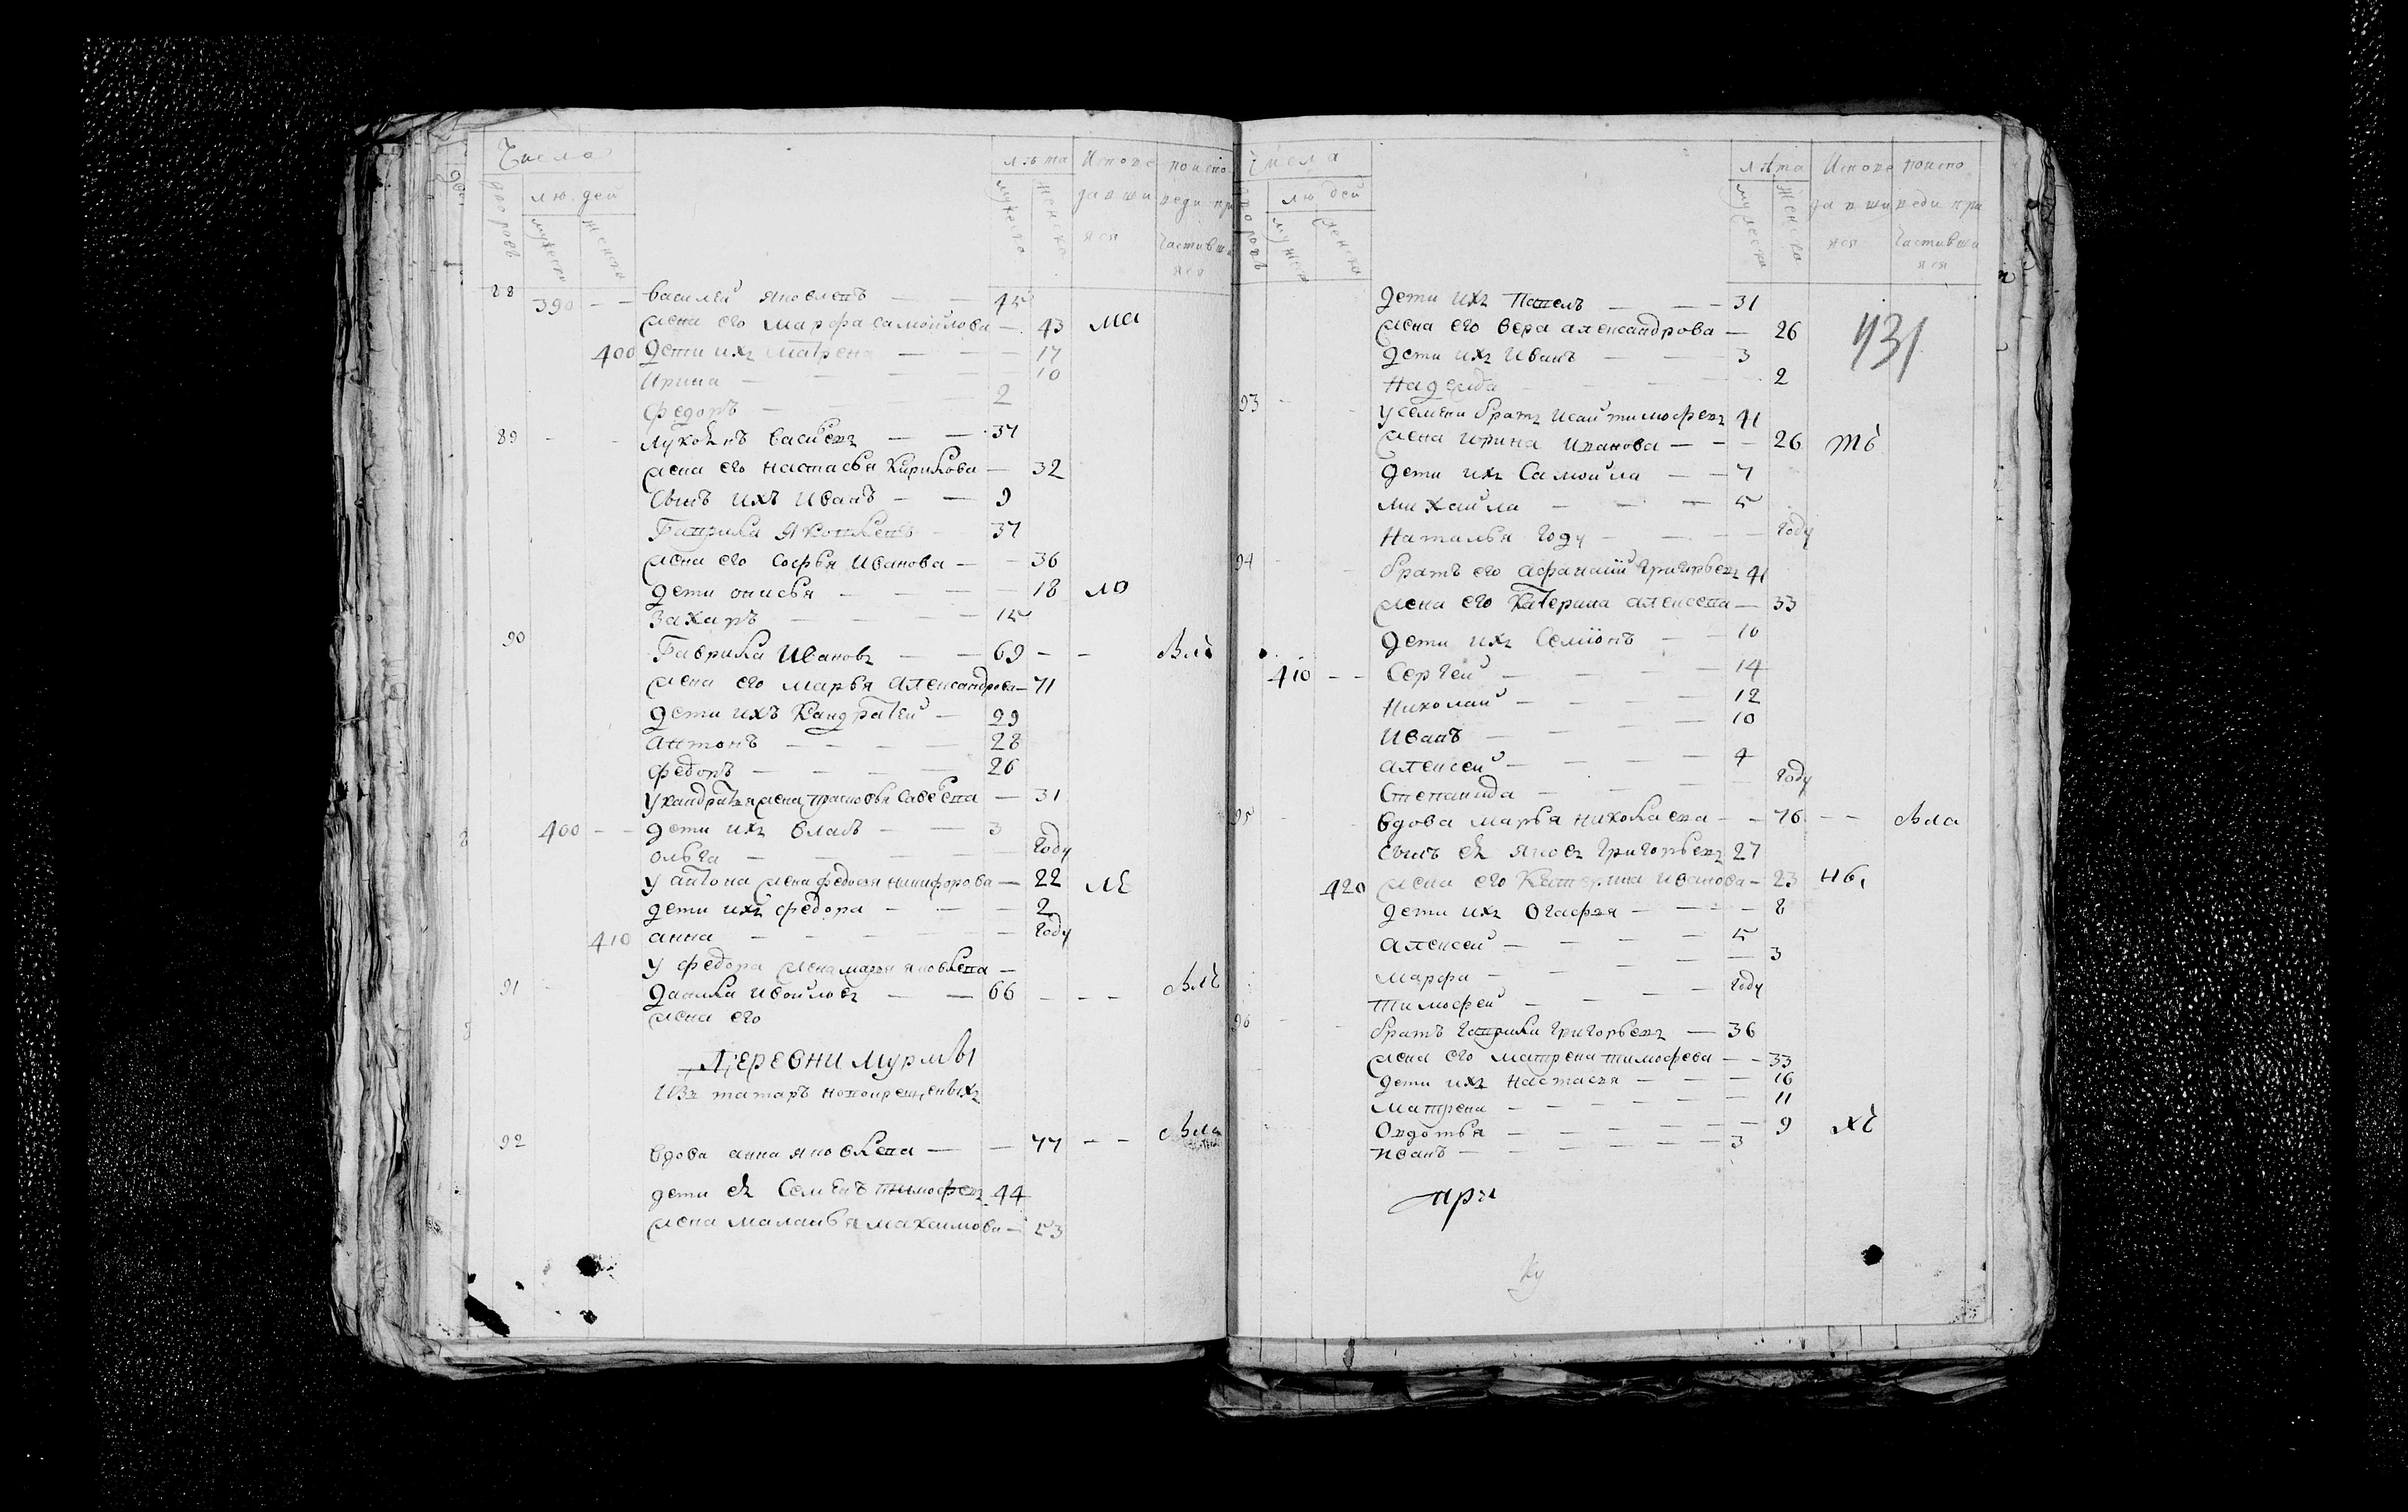 Числа
лѣта Испове поиспо
людей
дворовъ мужеска женска
мужеска женска
давши реди при
яся частивши
яся
88 390 - - василеи яковлевъ - - 45
жена его марфа самоилова - 43 ма
400 дети ихъ матрена - - 17
Ирина - - 10
федоръ - - 2
89 - - лукоянъ васильевъ - - 37
жена его настасья Кирилова - 32
сынъ ихъ иванъ - - 9
Гаврила Яковлевъ - 37
жена его софья иванова - - 36
дети онисья - - 18 мв
Захаръ - - 15
90 Гаврила Ивановъ - - 69 - -
жена его марья александрова - 71
дети ихъ Кандратеи - 29
антонъ - - 28
федоръ - - 26
у кандратья жена прасковья савельева - 31
400 - - дети ихъ власъ - - 3
ольга - - году
у антона жена федосья никифорова - 22 ме
дети ихъ федора - - 2
410 анна - - году
у федора жена марья яковлева -
91 - данила Исоиловъ - - 66 - - -
жена его
Деревни мурмы
Изъ татаръ новокрещеныхъ
92 вдова анна яковлева - - 77 - -
дети ея Семенъ тимофеевъ 44
жена маланья махаимова - 53
Числа
лѣта Испове поиспо
людей
дворовъ мужеска женска
мужеска женска
давши реди при
яся частивши
яся
дети ихъ Павелъ - - 31
жена его вера александрова - 26
731
дети ихъ Иванъ - - 3
Надежда - - 2
93 - - у семена братъ исаи тимофеевъ 41
жена ирина иванова - - - 26
дети ихъ Самоила - - 7
михаила - - 5
Наталья году - - году
94 - - братъ его афанасии григорьевъ 41
жена его Катерина алексеева - 33
дети ихъ Семионъ - - 16
410 - - Сергеи - - 14
Николаи - - 12
Иванъ - - 10
алексеи - - 4
Степанида - - году
95 - - вдова марья николаева - - 76 - -
сынъ ея яковъ Григорьевъ 27
420 жена его Катерина иванова - 23
дети ихъ Огафья - - 8
Алексеи - - 5
марфа - - 3
Тимофеи - - году
96 - - братъ гаврила григорьевъ - 36
жена его матрена тимофеева - - 33
дети ихъ настасья - - 16
матрена - - 11
Овдотья - - 9
иванъ - - 3